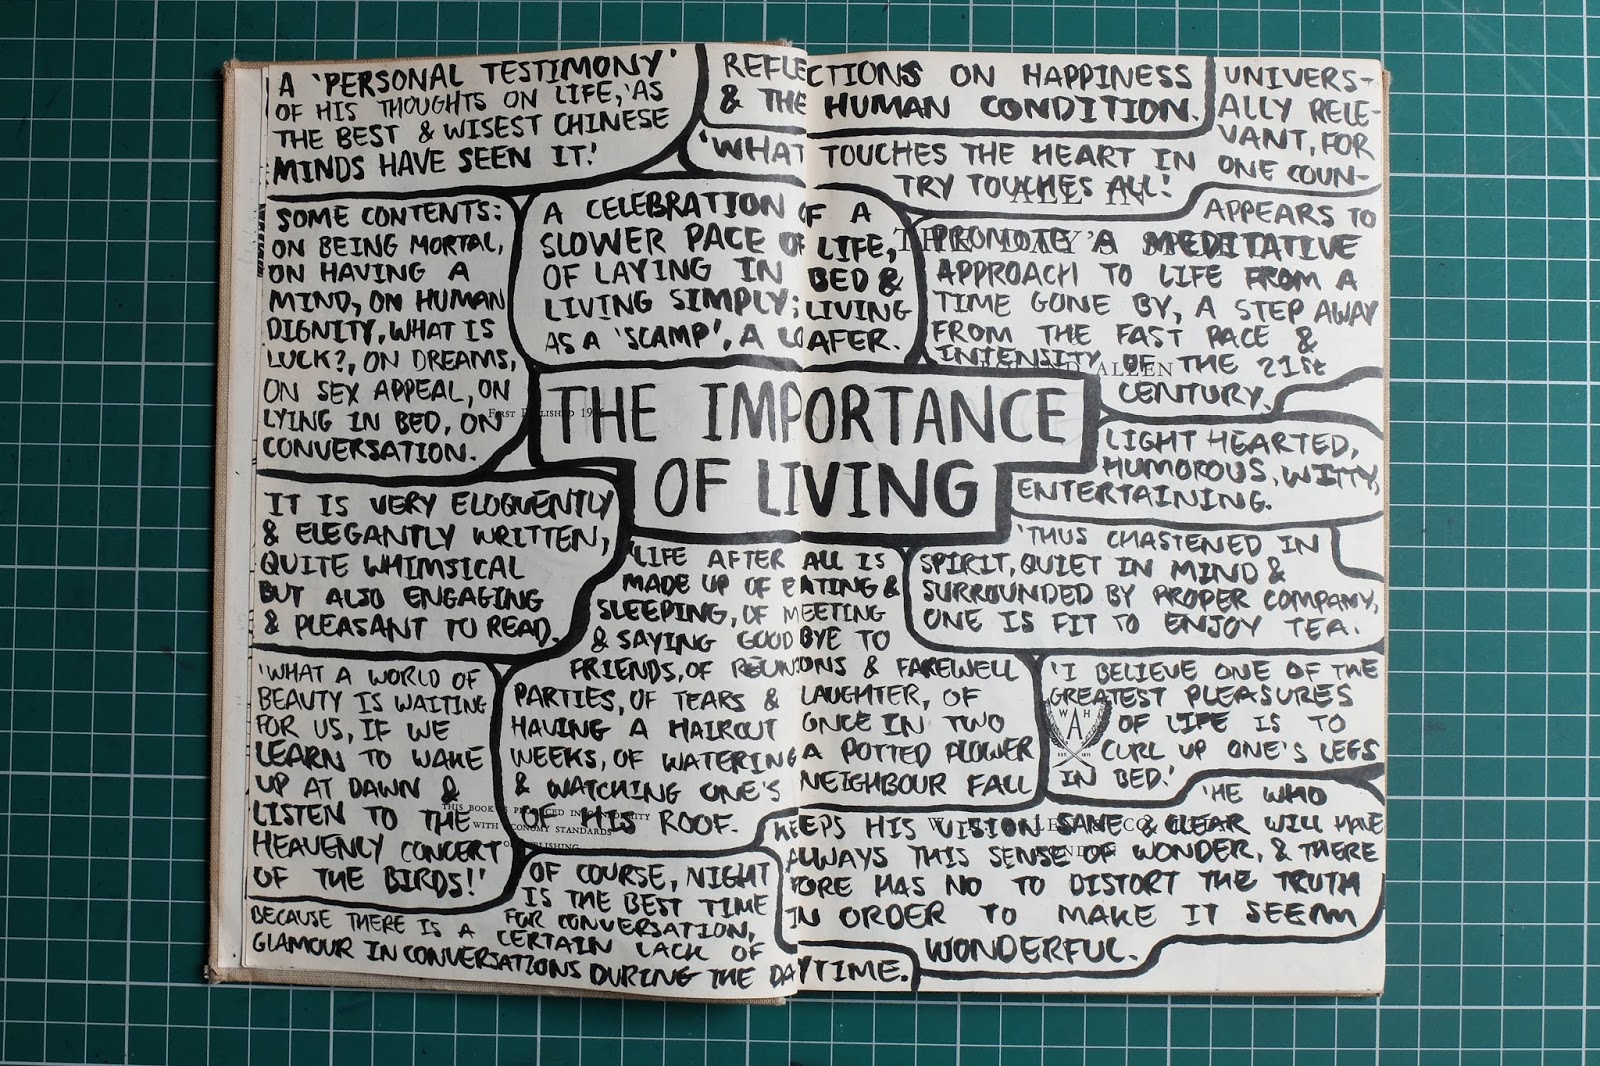 A 'PERSONAL TESTIMONY'
OF HIS THOUGHTS ON LIFE, 'AS
THE BEST & WISEST CHINESE
MINDS HAVE SEEN IT.'
REFLECTIONS ON HAPPINESS
& THE HUMAN CONDITION.
UNIVERS-
ALLY RELE-
VANT, FOR
'WHAT TOUCHES THE HEART IN ONE COUN-
TRY TOUCHES ALL!'
SOME CONTENTS:
ON BEING MORTAL,
ON HAVING A
MIND, ON HUMAN
DIGNITY, WHAT IS
LUCK?, ON DREAMS,
ON SEX APPEAL, ON
LYING IN BED, ON
CONVERSATION.
A CELEBRATION OF A
SLOWER PACE OF LIFE,
OF LAYING IN BED &
LIVING SIMPLY; LIVING
AS A 'SCAMP', A LOAFER.
APPEARS TO
PROMOTE A MEDITATIVE
APPROACH TO LIFE FROM A
TIME GONE BY, A STEP AWAY
FROM THE FAST PACE &
INTENSITY OF THE 21st
CENTURY.
ALL IN
ALLEN
FIRST PUBLISHED
THE IMPORTANCE
OF LIVING
LIGHT HEARTED,
HUMOROUS, WITTY,
ENTERTAINING.
IT IS VERY ELOQUENTLY
& ELEGANTLY WRITTEN,
QUITE WHIMSICAL
BUT ALSO ENGAGING
& PLEASANT TO READ.
'LIFE AFTER ALL IS
MADE UP OF EATING &
SLEEPING, OF MEETING
& SAYING GOODBYE TO
FRIENDS, OF REUNIONS & FAREWELL
PARTIES, OF TEARS & LAUGHTER, OF
HAVING A HAIRCUT ONCE IN TWO
WEEKS, OF WATERING A POTTED FLOWER
& WATCHING ONE'S NEIGHBOUR FALL
OF HIS ROOF.
'THUS CHASTENED IN
SPIRIT, QUIET IN MIND &
SURROUNDED BY PROPER COMPANY,
ONE IS FIT TO ENJOY TEA.
'WHAT A WORLD OF
BEAUTY IS WAITING
FOR US, IF WE
LEARN TO WAKE
UP AT DAWN &
LISTEN TO THE
HEAVENLY CONCERT
OF THE BIRDS!'
THIS BOOK IS PRODUCED IN CONFORMITY
WITH ECONOMY STANDARDS
'I BELIEVE ONE OF THE
GREATEST PLEASURES
OF LIFE IS TO
CURL UP ONE'S LEGS
IN BED.'
W H
A
'HE WHO
KEEPS HIS VISION SANE & CLEAR WILL HAVE
ALWAYS THIS SENSE OF WONDER, & THERE
FORE HAS NO TO DISTORT THE TRUTH
IN ORDER TO MAKE IT SEEM
WONDERFUL.
LONDON
OF COURSE, NIGHT
IS THE BEST TIME
FOR CONVERSATION,
BECAUSE THERE IS A CERTAIN LACK OF
GLAMOUR IN CONVERSATIONS DURING THE DAYTIME.